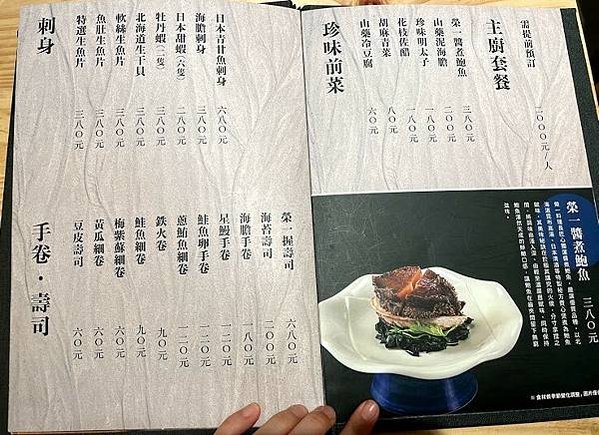 需提前預訂
主廚套餐
二○○○元/人
珍味前菜
榮一醬煮鮑魚 三八○元
山藥泥海膽 二○○元
珍味明太子 一八○元
花枝佐醋 一八○元
胡麻青菜 八○元
山藥冷豆腐 六○元
榮一醬煮鮑魚 三八○元
※食材善季節變化調整,圖片僅
刺身
日本青甘魚刺身 六八○元
海膽刺身 三八○元
日本甜蝦（六隻） 二八○元
牡丹蝦（二隻） 三八○元
北海道生干貝 三八○元
軟絲生魚片 三八○元
魚肚生魚片 三八○元
特選生魚片 三八○元
手卷・壽司
榮一握壽司 六八○元
海苔壽司 二○○元
海膽手卷 一八○元
星鰻手卷 一二○元
鮭魚卵手卷 一二○元
蔥鮪魚細卷 一二○元
鐵火卷 九○元
鮭魚細卷 九○元
梅紫蘇細卷 六○元
黃瓜細卷 六○元
豆皮壽司 六○元